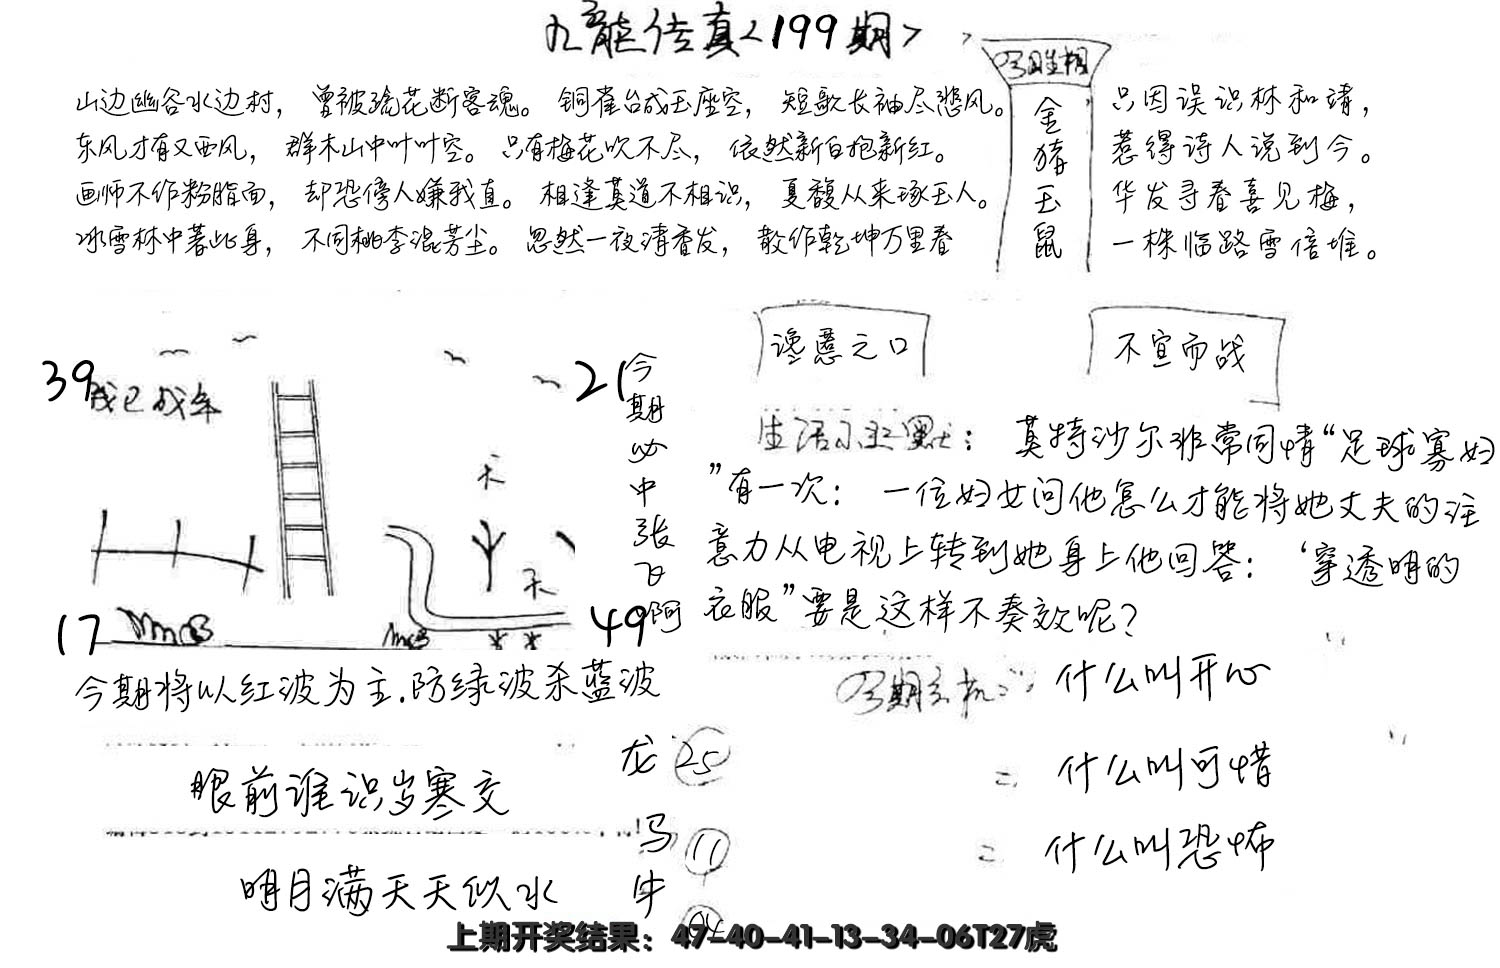 九龍传真<199期>
山边幽谷水边村，曾被疏花断客魂。铜雀台成玉座空，短歌长袖尽悲风。
东风才有又西风，群木山中叶叶空。只有梅花吹不尽，依然新白抱新红。
画师不作粉脂面，却恐傍人嫌我直。相逢莫道不相识，夏馥从来琢玉人。
冰雪林中著此身，不同桃李混芳尘。忽然一夜清香发，散作乾坤万里春
金猪玉鼠
只因误识林和靖，
惹得诗人说到今。
华发寻春喜见梅，
一株临路雪倍堆。
谗慝之口
不宣而战
39
21
17
49
今期必中张飞啊
生活小幽默：莫特沙尔非常同情“足球寡妇
”有一次：一位妇女问他怎么才能将她丈夫的注
意力从电视上转到她身上他回答：‘穿透明的
衣服”要是这样不奏效呢？
今期将以红波为主.防绿波杀蓝波
今期玄机：什么叫开心
什么叫可惜
什么叫恐怖
眼前谁识岁寒交
明月满天天似水
龙 25
马 11
牛
上期开奖结果：47-40-41-13-34-06T27虎